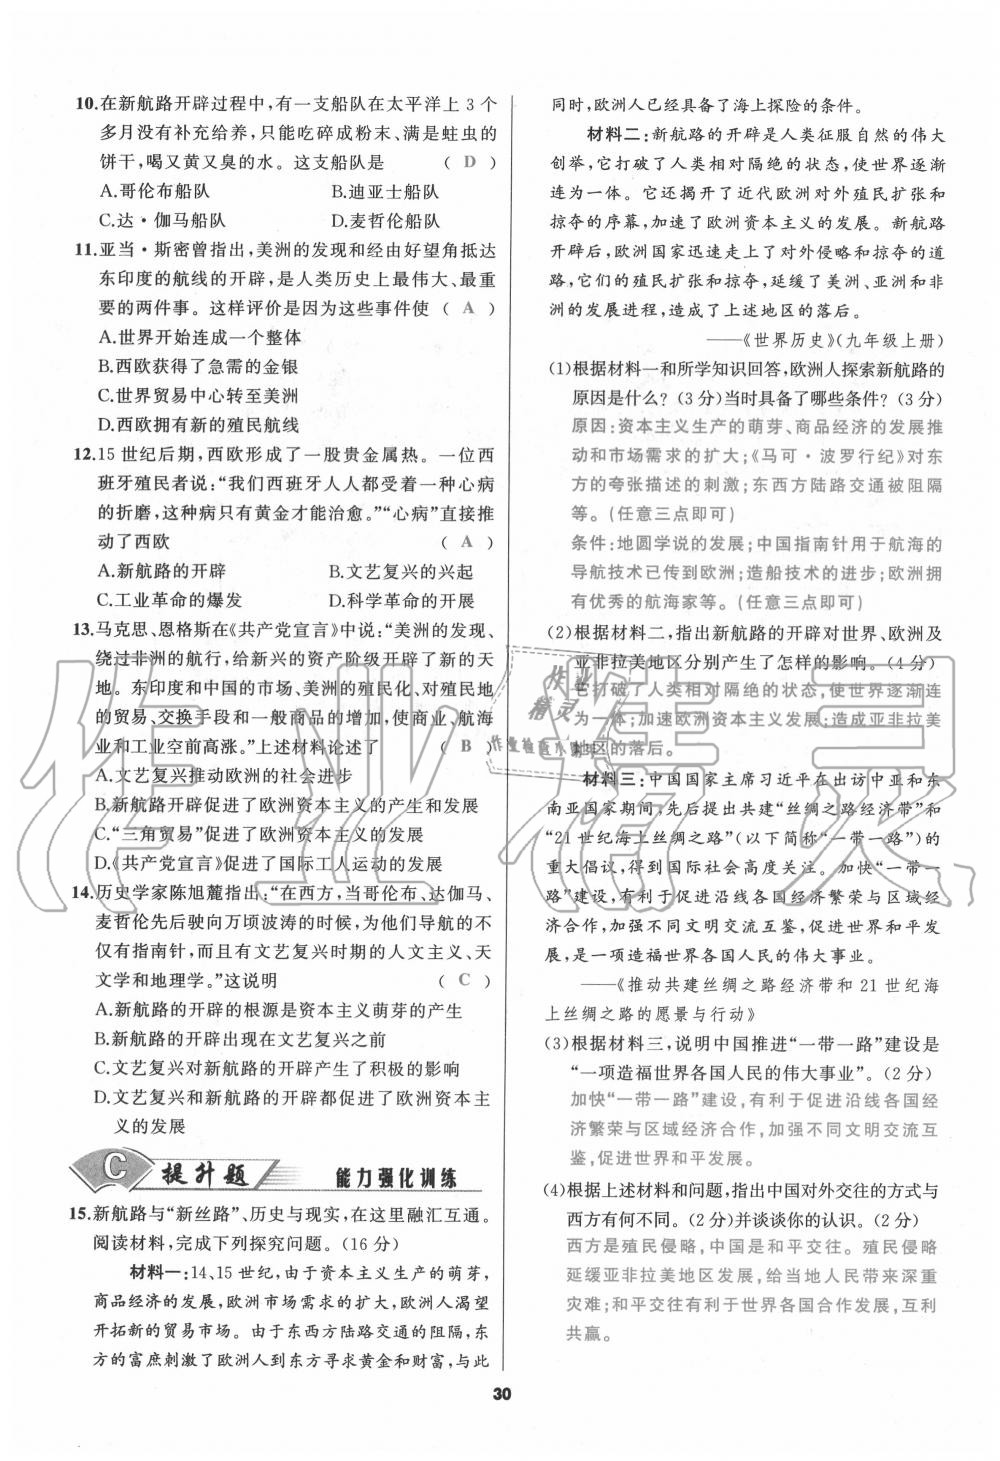 10.在新航路开辟过程中,有一支船队在太平洋上 3 个
多月没有补充给养,只能吃碎成粉末、满是蛀虫的
饼干,喝又黄又臭的水。这支船队是 ( D )
A.哥伦布船队 B.迪亚士船队
C.达·伽马船队 D.麦哲伦船队
11.亚当·斯密曾指出,美洲的发现和经由好望角抵达
东印度的航线的开辟,是人类历史上最伟大、最重
要的两件事。这样评价是因为这些事件使 ( A )
A.世界开始连成一个整体
B.西欧获得了急需的金银
C.世界贸易中心转至美洲
D.西欧拥有新的殖民航线
12.15 世纪后期,西欧形成了一股贵金属热。一位西
班牙殖民者说:“我们西班牙人人都受着一种心病
的折磨,这种病只有黄金才能治愈。”“心病”直接推
动了西欧 ( A )
A.新航路的开辟 B.文艺复兴的兴起
C.工业革命的爆发 D.科学革命的开展
13.马克思、恩格斯在《共产党宣言》中说:“美洲的发现、
绕过非洲的航行,给新兴的资产阶级开辟了新的天
地。东印度和中国的市场、美洲的殖民化、对殖民地
的贸易、交换手段和一般商品的增加,使商业、航海
业和工业空前高涨。”上述材料论述了 ( B )
A.文艺复兴推动欧洲的社会进步
B.新航路开辟促进了欧洲资本主义的产生和发展
C.“三角贸易”促进了欧洲资本主义的发展
D.《共产党宣言》促进了国际工人运动的发展
14.历史学家陈旭麓指出:“在西方,当哥伦布、达伽马、
麦哲伦先后驶向万顷波涛的时候,为他们导航的不
仅有指南针,而且有文艺复兴时期的人文主义、天
文学和地理学。”这说明 ( C )
A.新航路的开辟的根源是资本主义萌芽的产生
B.新航路的开辟出现在文艺复兴之前
C.文艺复兴对新航路的开辟产生了积极的影响
D.文艺复兴和新航路的开辟都促进了欧洲资本主
义的发展
C 提升题 能力强化训练
15.新航路与“新丝路”、历史与现实,在这里融汇互通。
阅读材料,完成下列探究问题。(16 分)
材料一:14、15 世纪,由于资本主义生产的萌芽,
商品经济的发展,欧洲市场需求的扩大,欧洲人渴望
开拓新的贸易市场。由于东西方陆路交通的阻隔,东
方的富庶刺激了欧洲人到东方寻求黄金和财富,与此
同时,欧洲人已经具备了海上探险的条件。
材料二:新航路的开辟是人类征服自然的伟大
创举,它打破了人类相对隔绝的状态,使世界逐渐
连为一体。它还揭开了近代欧洲对外殖民扩张和
掠夺的序幕,加速了欧洲资本主义的发展。新航路
开辟后,欧洲国家迅速走上了对外侵略和掠夺的道
路,它们的殖民扩张和掠夺,延缓了美洲、亚洲和非
洲的发展进程,造成了上述地区的落后。
——《世界历史》(九年级上册)
(1)根据材料一和所学知识回答,欧洲人探索新航路的
原因是什么?(3 分)当时具备了哪些条件?(3 分)
原因:资本主义生产的萌芽、商品经济的发展推
动和市场需求的扩大;《马可·波罗行纪》对东
方的夸张描述的刺激;东西方陆路交通被阻隔
等。(任意三点即可)
条件:地圆学说的发展;中国指南针用于航海的
导航技术已传到欧洲;造船技术的进步;欧洲拥
有优秀的航海家等。(任意三点即可)
(2)根据材料二,指出新航路的开辟对世界、欧洲及
亚非拉美地区分别产生了怎样的影响。(4 分)
它打破了人类相对隔绝的状态,使世界逐渐连
为一体;加速欧洲资本主义发展;造成亚非拉美
地区的落后。
材料三:中国国家主席习近平在出访中亚和东
南亚国家期间,先后提出共建“丝绸之路经济带”和
“21 世纪海上丝绸之路”(以下简称“一带一路”)的
重大倡议,得到国际社会高度关注。加快“一带一
路”建设,有利于促进沿线各国经济繁荣与区域经
济合作,加强不同文明交流互鉴,促进世界和平发
展,是一项造福世界各国人民的伟大事业。
——《推动共建丝绸之路经济带和 21 世纪海
上丝绸之路的愿景与行动》
(3)根据材料三,说明中国推进“一带一路”建设是
“一项造福世界各国人民的伟大事业”。(2 分)
加快“一带一路”建设,有利于促进沿线各国经
济繁荣与区域经济合作,加强不同文明交流互
鉴,促进世界和平发展。
(4)根据上述材料和问题,指出中国对外交往的方式与
西方有何不同。(2 分)并谈谈你的认识。(2 分)
西方是殖民侵略,中国是和平交往。殖民侵略
延缓亚非拉美地区发展,给当地人民带来深重
灾难;和平交往有利于世界各国合作发展,互利
共赢。
30
作业精灵